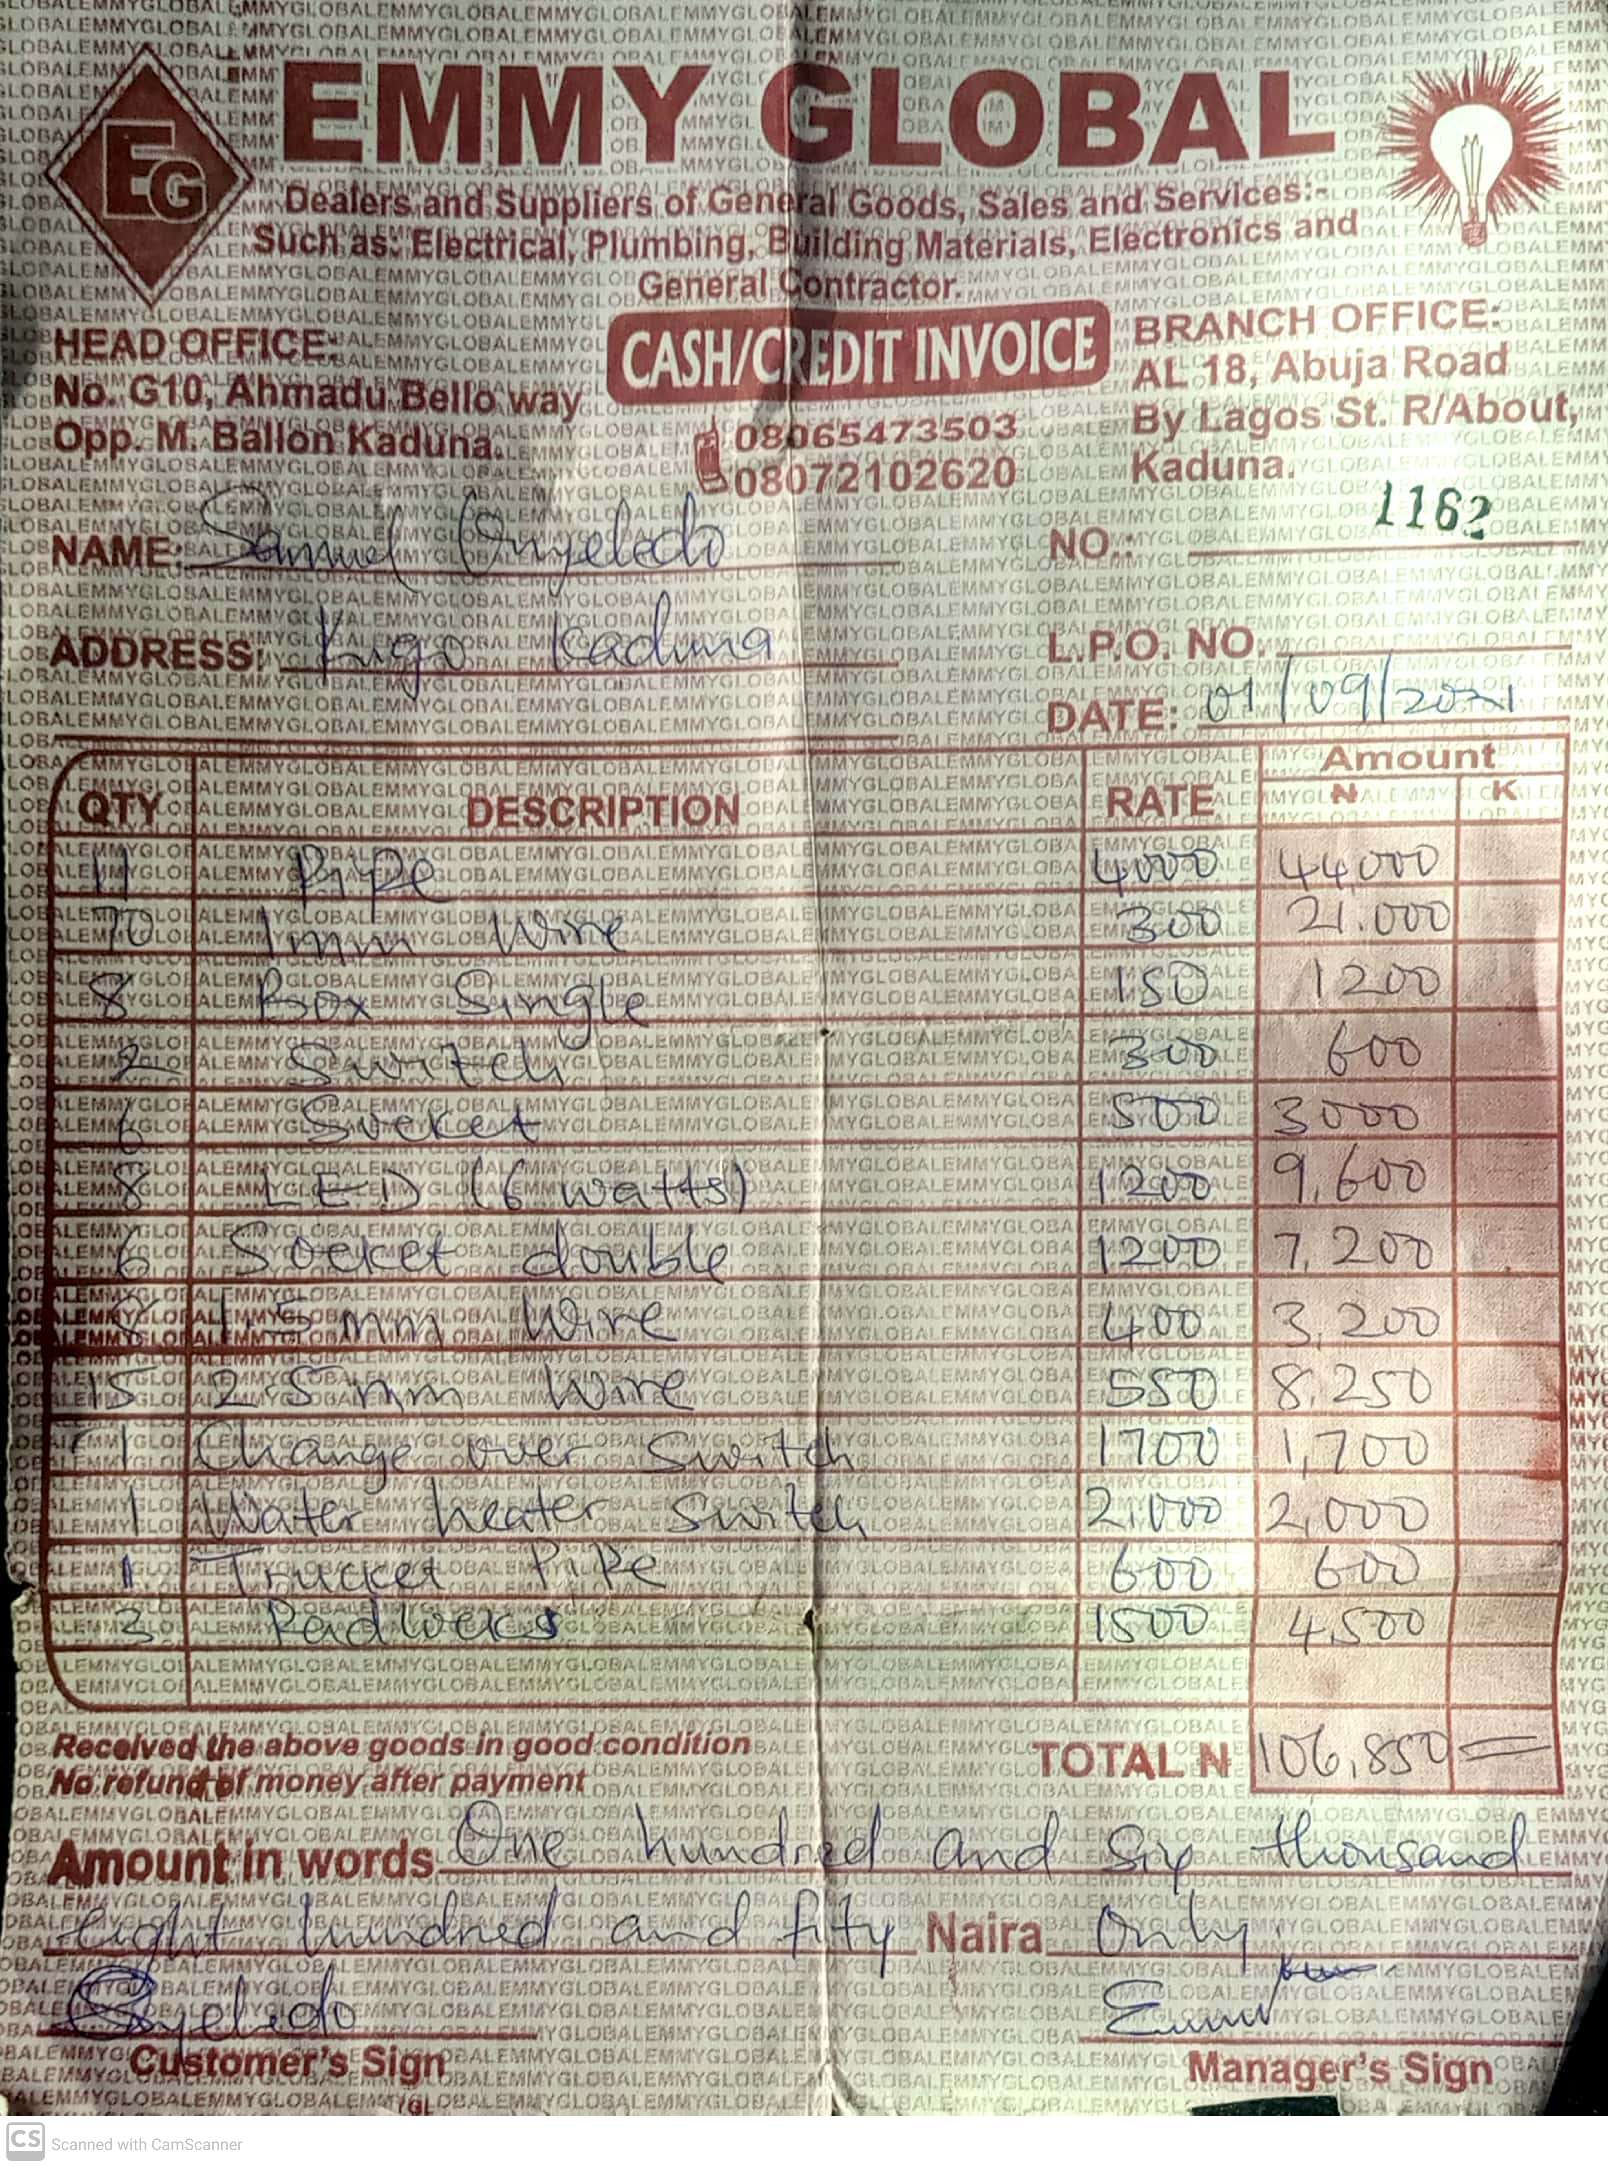 EMMY GLOBAL
EG
Dealers and Suppliers of General Goods, Sales and Services:-
Such as: Electrical, Plumbing, Building Materials, Electronics and
General Contractor.
HEAD OFFICE:
No. G10, Ahmadu Bello way
Opp. M. Ballon Kaduna.
CASH/CREDIT INVOICE
08065473503
08072102620
BRANCH OFFICE:
AL 18, Abuja Road
By Lagos St. R/About,
Kaduna.
NAME: Samuel Onyeledo
NO.: 1162
ADDRESS: Kugo Kaduna
L.P.O. NO.
DATE: 01/09/2021
QTY DESCRIPTION RATE Amount
N K
11 Pipe 4000 44,000
70 1mm Wire 300 21.000
8 Box Single 150 1200
2 Switch 300 600
6 Socket 500 3000
8 LED (6 watts) 1200 9,600
6 Socket double 1200 7,200
8 1.5 mm Wire 400 3,200
15 2.5 mm Wire 550 8,250
1 Change over Switch 1700 1,700
1 Water heater Switch 2,000 2,000
1 Trucket Pipe 600 600
3 Padlocks 1500 4,500
Received the above goods in good condition
No refund of money after payment
TOTAL N 106,850 =
Amount in words One hundred and Six thousand
eight hundred and fity Naira Only
Customer's Sign
Manager's Sign
CS Scanned with CamScanner